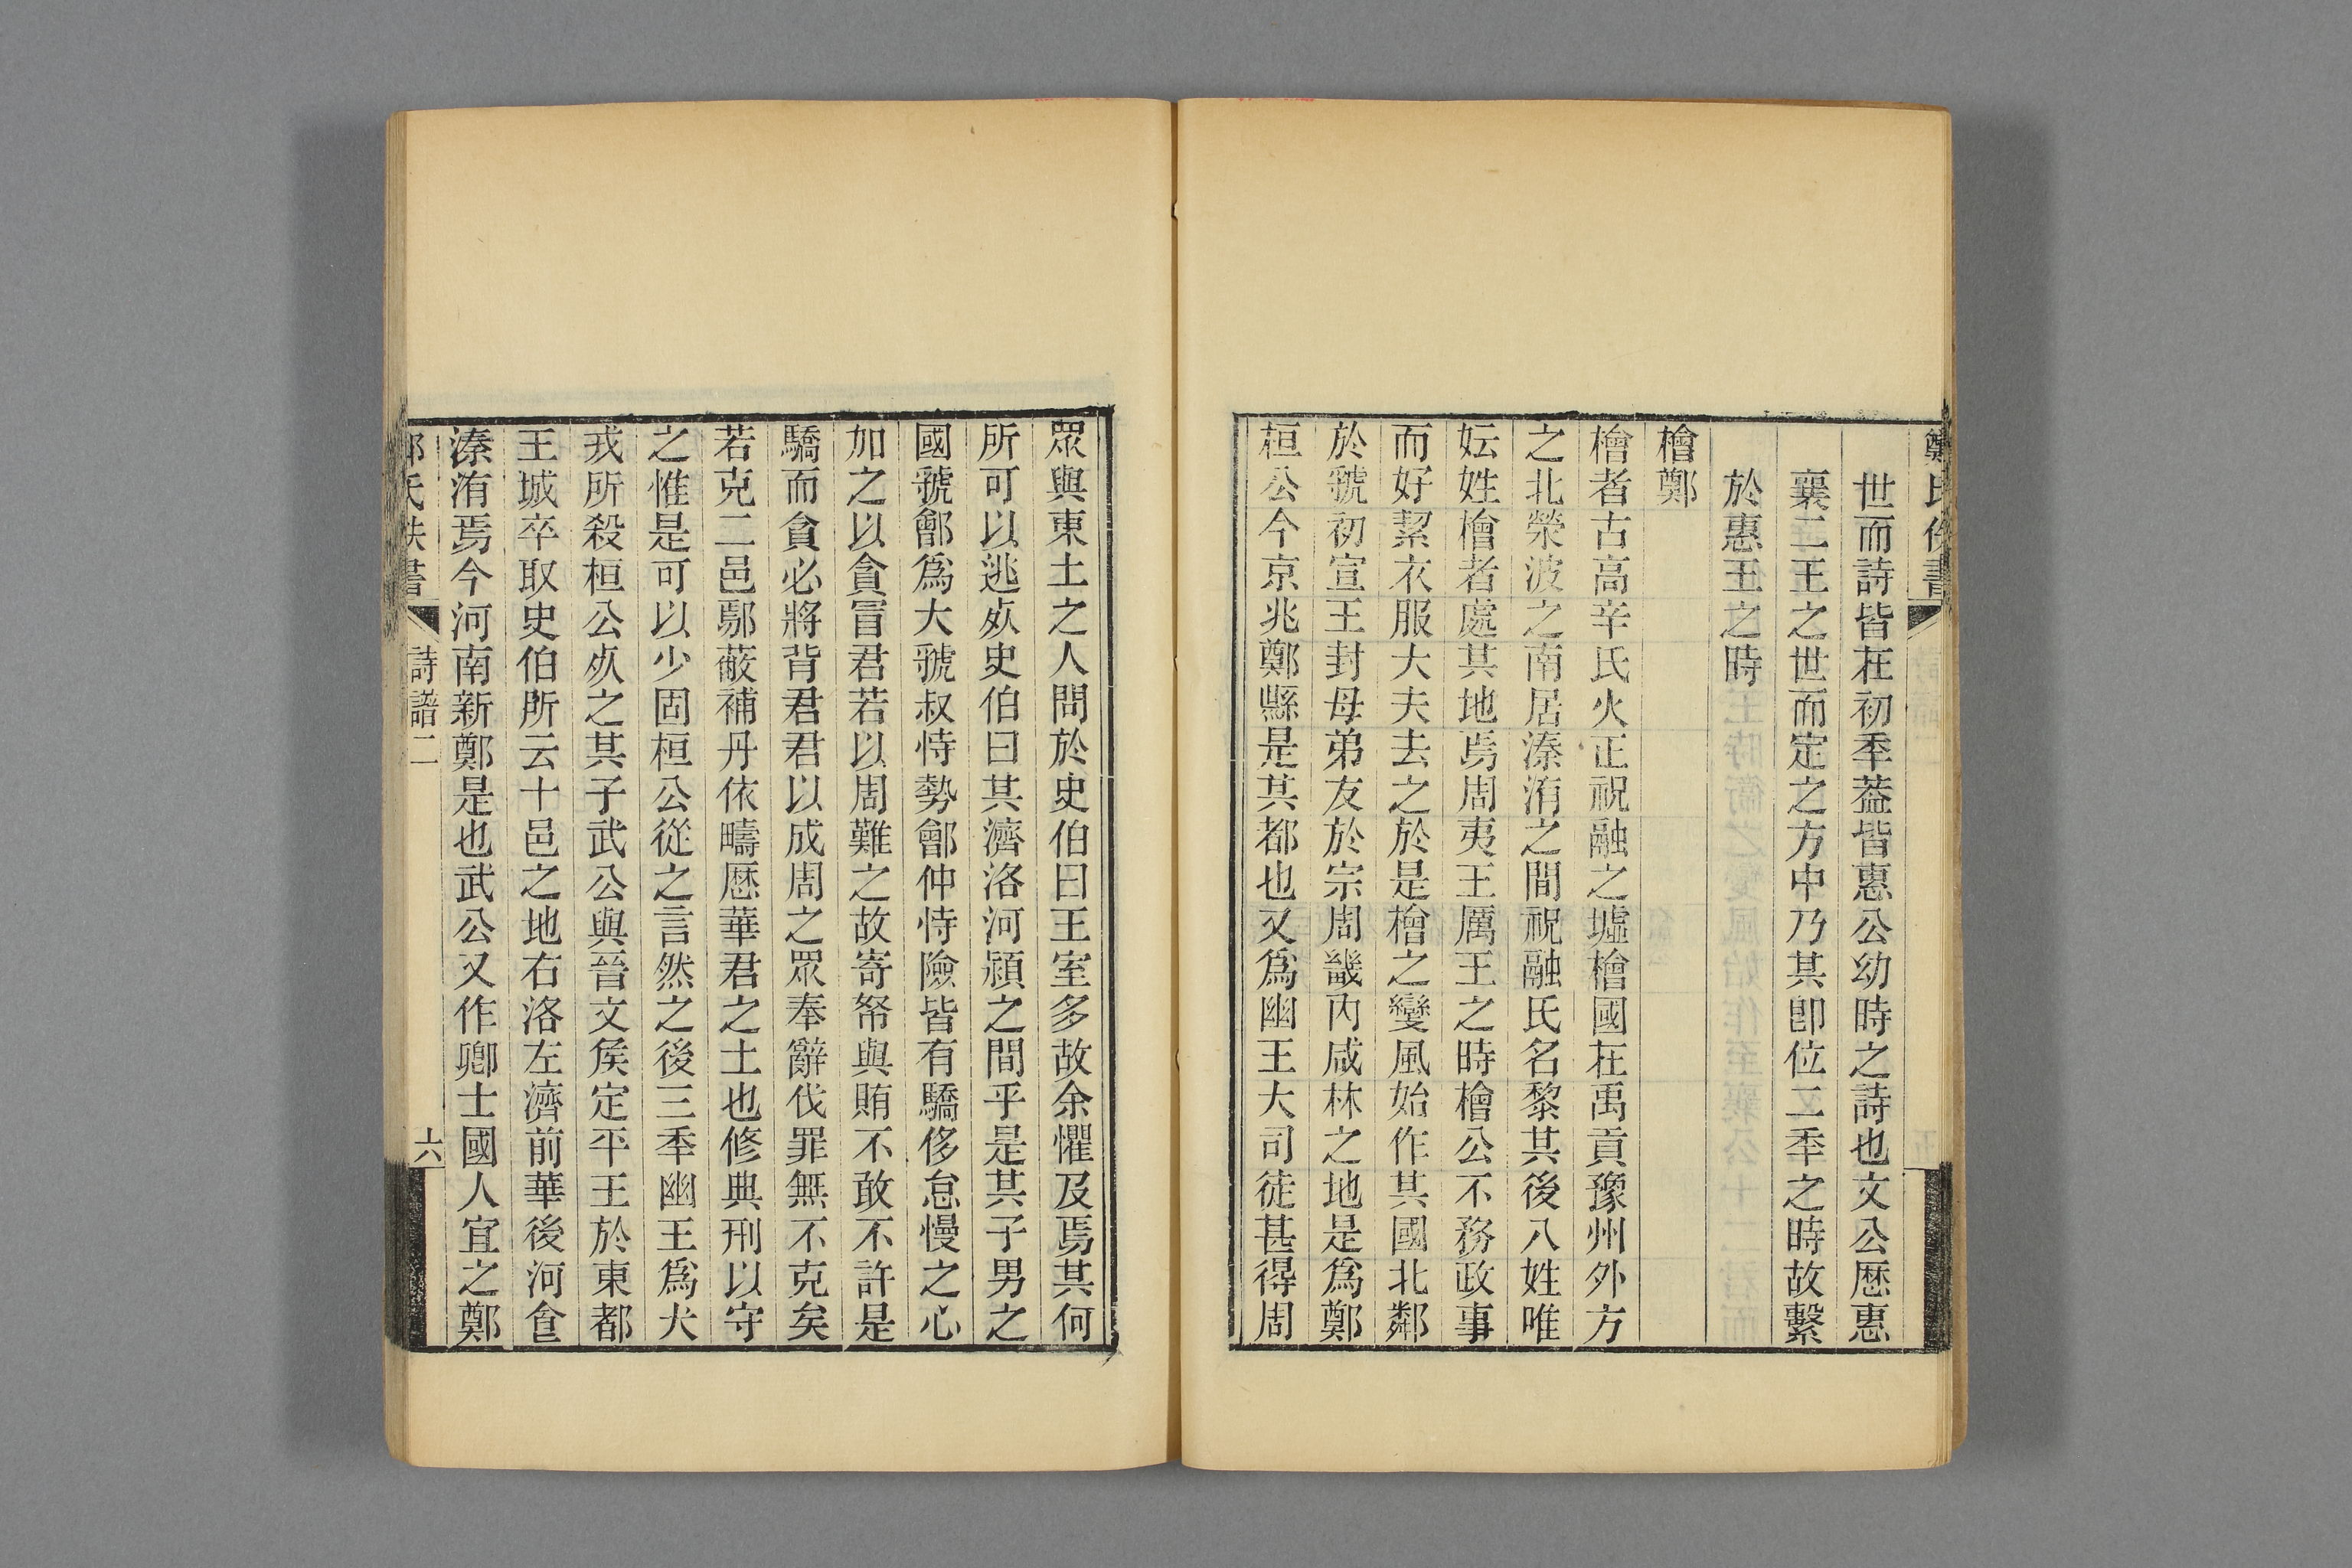 鄭氏佚書
世而詩皆在初秊葢皆惠公幼時之詩也文公歷惠
襄二王之世而定之方中乃其卽位二秊之時故繫
於惠王之時
檜鄭
檜者古高辛氏火正祝融之墟檜國在禹貢豫州外方
之北滎波之南居溱洧之間祝融氏名黎其後八姓唯
妘姓檜者處其地焉周夷王厲王之時檜公不務政事
而好絜衣服大夫去之於是檜之變風始作其國北鄰
於虢初宣王封母弟友於宗周畿內咸林之地是爲鄭
桓公今京兆鄭縣是其都也又爲幽王大司徒甚得周
眾與東土之人問於史伯曰王室多故余懼及焉其何
所可以逃𣦸史伯曰其濟洛河潁之間乎是其子男之
國虢鄶爲大虢叔恃勢鄶仲恃險皆有驕侈怠慢之心
加之以貪冒君若以周難之故寄帑與賄不敢不許是
驕而貪必將背君君以成周之眾奉辭伐罪無不克矣
若克二邑鄢蔽補丹依疇歷華君之土也修典刑以守
之惟是可以少固桓公從之言然之後三秊幽王爲犬
戎所殺桓公𣦸之其子武公與晉文矦定平王於東都
王城卒取史伯所云十邑之地右洛左濟前華後河食
溱洧焉今河南新鄭是也武公又作卿士國人宜之鄭
鄭氏佚書 詩譜二 六